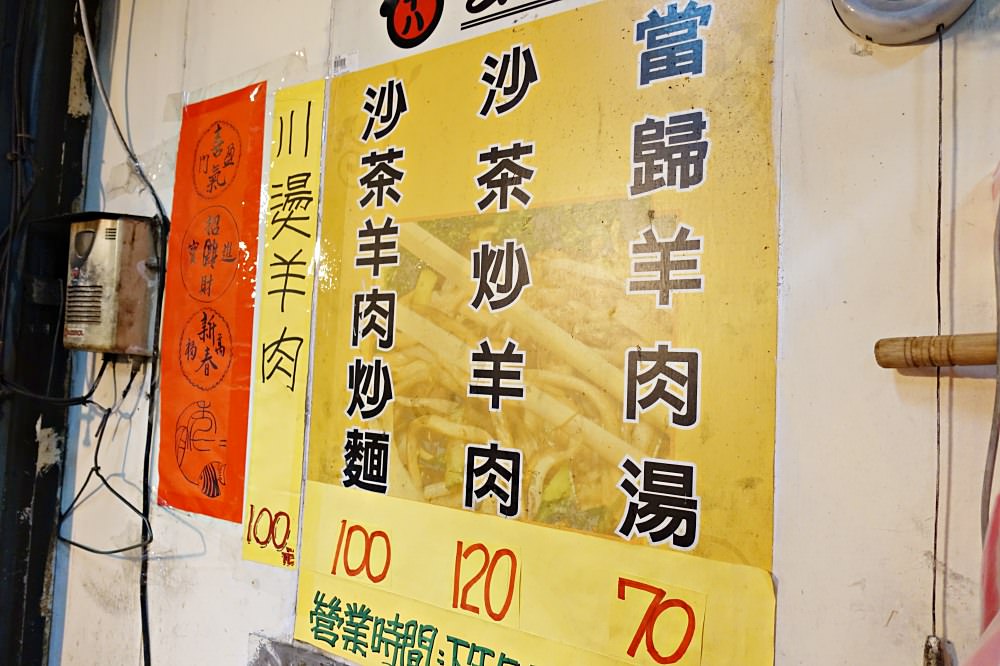 當歸羊肉湯
70
沙茶炒羊肉
120
沙茶羊肉炒麵
100
川燙羊肉
100元
喜氣盈門
招財進寶
新春
營業時間:下午